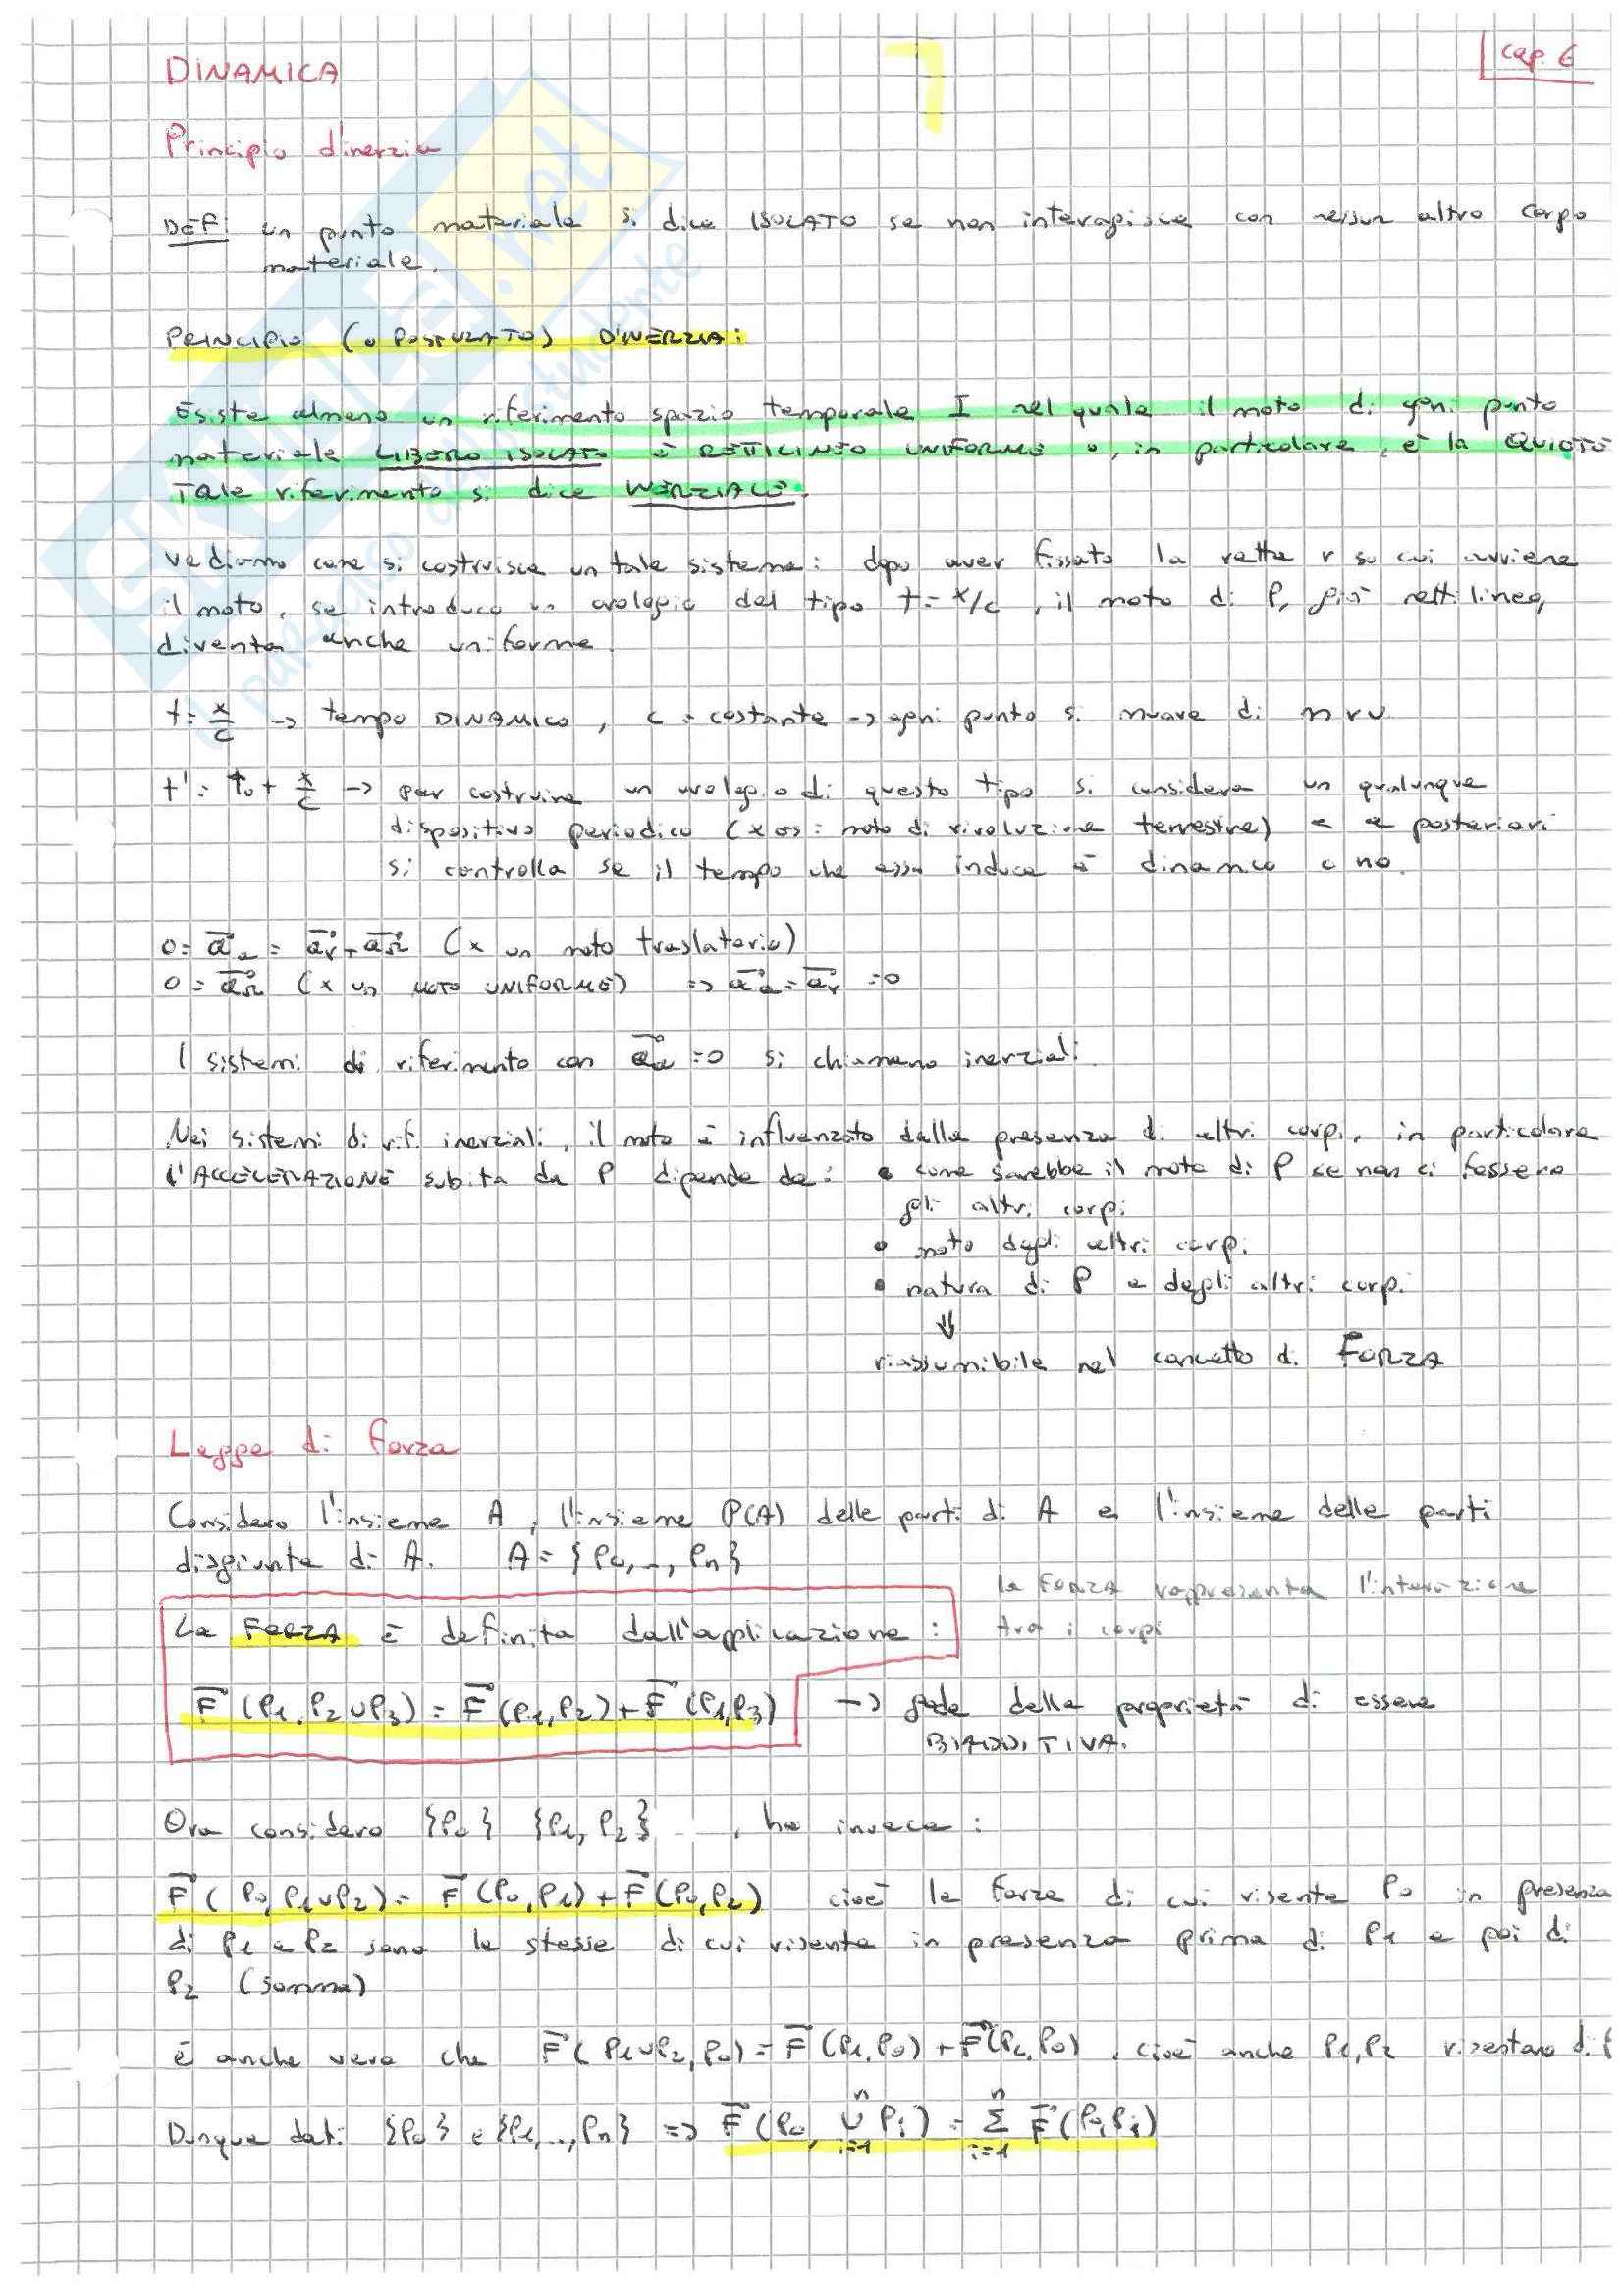 cap. 6
DINAMICA
Principio d'inerzia
DEF: un punto materiale si dice ISOLATO se non interagisce con nessun altro corpo
materiale.
PRINCIPIO (o POSTULATO) D'INERZIA:
Esiste almeno un riferimento spazio temporale I nel quale il moto di ogni punto
materiale LIBERO ISOLATO è RETTILINEO UNIFORME o, in particolare, è la QUIETE
Tale riferimento si dice INERZIALE.
Vediamo come si costruisce un tale sistema: dopo aver fissato la retta r su cui avviene
il moto, se introduco un orologio del tipo t = x/c, il moto di P, già rettilineo,
diventa anche uniforme.
t = x/c → tempo DINAMICO, c = costante → ogni punto si muove di m r u
t' = t₀ + x/c → per costruire un orologio di questo tipo si considera un qualunque
dispositivo periodico (x es: moto di rivoluzione terrestre) e a posteriori
si controlla se il tempo che esso induce è dinamico o no.
0 = a⃗a = a⃗r + a⃗Ω (x un moto traslatorio)
0 = a⃗Ω (x un MOTO UNIFORME) => a⃗a = a⃗r = 0
I sistemi di riferimento con a⃗a = 0 si chiamano inerziali.
Nei sistemi di rif. inerziali, il moto è influenzato dalla presenza di altri corpi, in particolare
l'ACCELERAZIONE subita da P dipende da: • come sarebbe il moto di P se non ci fossero
gli altri corpi
• moto degli altri corpi
• natura di P e degli altri corpi
⇓
riassumibile nel concetto di FORZA
Legge di forza
Considero l'insieme A, l'insieme P(A) delle parti di A e l'insieme delle parti
disgiunte di A. A = {P₀, .., Pn}
la FORZA rappresenta l'interazione
tra i corpi
La FORZA è definita dall'applicazione:
F⃗(P₁, P₂∪P₃) = F⃗(P₁,P₂) + F⃗(P₁,P₃) → gode della proprietà di essere
BIADDITIVA.
Ora considero {P₀} {P₁, P₂} .., ho invece:
F⃗(P₀, P₁∪P₂) = F⃗(P₀,P₁) + F⃗(P₀,P₂) cioè le forze di cui risente P₀ in presenza
di P₁ e P₂ sono le stesse di cui risente in presenza prima di P₁ e poi di
P₂ (somma)
È anche vero che F⃗(P₁∪P₂, P₀) = F⃗(P₁,P₀) + F⃗(P₂,P₀), cioè anche P₁,P₂ risentono di P
Dunque dati {P₀} e {P₁, .., Pn} => F⃗(P₀, ∪ⁿᵢ₌₁ Pi) = Σⁿᵢ₌₁ F⃗(P₀Pi)